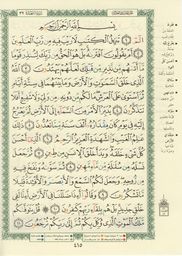 بِسْمِ اللَّهِ الرَّحْمَٰنِ الرَّحِيمِ
الٓمٓ ١ تَنزِيلُ الْكِتَٰبِ لَا رَيْبَ فِيهِ مِن رَّبِّ الْعَٰلَمِينَ ٢
أَمْ يَقُولُونَ افْتَرَىٰهُ بَلْ هُوَ الْحَقُّ مِن رَّبِّكَ لِتُنذِرَ قَوْمًا
مَّا أَتَىٰهُم مِّن نَّذِيرٍ مِّن قَبْلِكَ لَعَلَّهُمْ يَهْتَدُونَ ٣
اللَّهُ الَّذِي خَلَقَ السَّمَٰوَٰتِ وَالْأَرْضَ وَمَا بَيْنَهُمَا فِي سِتَّةِ أَيَّامٍ
ثُمَّ اسْتَوَىٰ عَلَى الْعَرْشِ مَا لَكُم مِّن دُونِهِ مِن وَلِيٍّ وَلَا شَفِيعٍ
أَفَلَا تَتَذَكَّرُونَ ٤ يُدَبِّرُ الْأَمْرَ مِنَ السَّمَاءِ إِلَى الْأَرْضِ
ثُمَّ يَعْرُجُ إِلَيْهِ فِي يَوْمٍ كَانَ مِقْدَارُهُ أَلْفَ سَنَةٍ مِّمَّا
تَعُدُّونَ ٥ ذَٰلِكَ عَٰلِمُ الْغَيْبِ وَالشَّهَٰدَةِ الْعَزِيزُ الرَّحِيمُ ٦
الَّذِي أَحْسَنَ كُلَّ شَيْءٍ خَلَقَهُ وَبَدَأَ خَلْقَ الْإِنسَٰنِ مِن طِينٍ ٧
ثُمَّ جَعَلَ نَسْلَهُ مِن سُلَٰلَةٍ مِّن مَّاءٍ مَّهِينٍ ٨ ثُمَّ سَوَّىٰهُ وَنَفَخَ فِيهِ
مِن رُّوحِهِ وَجَعَلَ لَكُمُ السَّمْعَ وَالْأَبْصَٰرَ وَالْأَفْئِدَةَ قَلِيلًا
مَّا تَشْكُرُونَ ٩ وَقَالُوا أَءِذَا ضَلَلْنَا فِي الْأَرْضِ أَءِنَّا لَفِي
خَلْقٍ جَدِيدٍ بَلْ هُم بِلِقَاءِ رَبِّهِمْ كَٰفِرُونَ ١٠ قُلْ يَتَوَفَّىٰكُم
مَّلَكُ الْمَوْتِ الَّذِي وُكِّلَ بِكُمْ ثُمَّ إِلَىٰ رَبِّكُمْ تُرْجَعُونَ ١١
٤١٥